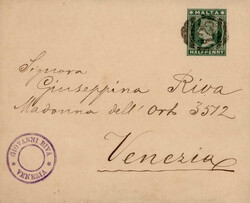 MALTA
HALFPENNY
Signora
Giuseppina Riva
Madonna dell' Orto 3512
Venezia
GIOVANNI RIVA
VIENNA